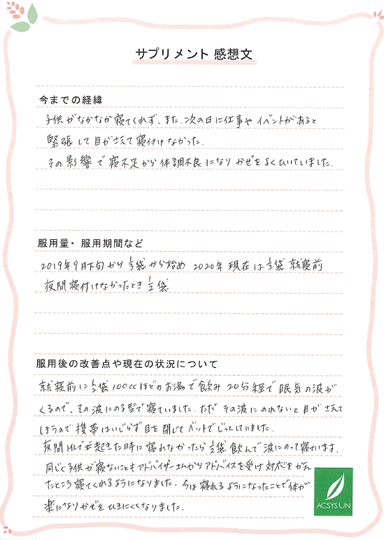 サプリメント 感想文
今までの経緯
子供がなかなか寝てくれず、また、次の日に仕事やイベントがあると
緊張して目がさえて寝付けなかった。
その影響で寝不足から体調不良になりかぜをよくひいていました。
服用量・服用期間など
2019年9月下旬から1/3袋から始め 2020年現在は1/3袋 就寝前
夜間寝付けなかったとき 1/3袋
服用後の改善点や現在の状況について
就寝前に1/3袋100ccほどのお湯で飲み 20分程で眠気の波が
くるので、その波にのる形で寝ていました。ただ その波にのれないと目がさえて
しまうので携帯はいじらず目を閉じてベットでじっとしていました。
夜間トイレで起きた時に寝れなかったら1/3袋飲んで波にのって寝ています。
同じく子供が寝ないこともアドバイザーさんからアドバイスを受け対応をかえ
たところ寝てくれるようになりました。今は寝れるようになったことで体が
楽になりかぜをひきにくくなりました。
ACSYS UN